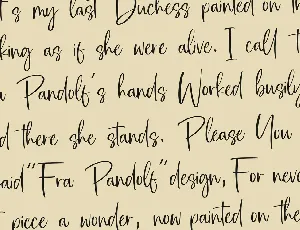 t's my last Duchess painted on th
king as if she were alive. I call t
a Pandolf's hands Worked busily
d there she stands. Please You
aid "Fra Pandolf" design, For neve
t piece a wonder, now painted on the